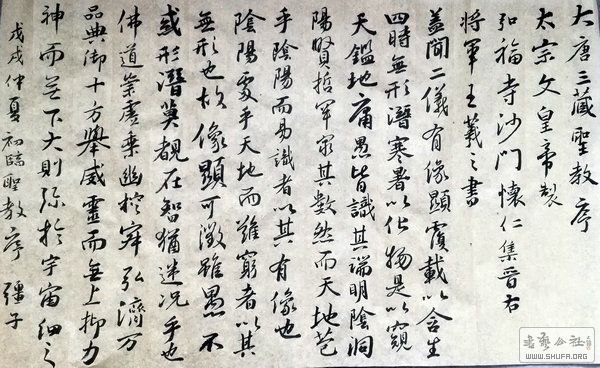 大唐三藏聖教序
太宗文皇帝製
弘福寺沙門懷仁集晉右
將軍王羲之書
蓋聞二儀有像顯覆載以含生
四時無形潛寒暑以化物是以窺
天鑑地庸愚皆識其端明陰洞
陽賢哲罕窮其數然而天地苞
乎陰陽而易識者以其有像也
陰陽處乎天地而難窮者以其
無形也故像顯可徵雖愚不
惑形潛莫覩在智猶迷況乎也
佛道崇虛乘幽控寂弘濟万
品典御十方舉威靈而無上抑力
神而下大則弥於宇宙細之
戊戌仲夏 初臨聖教序 子
書藝公社
WWW.SHUFA.ORG